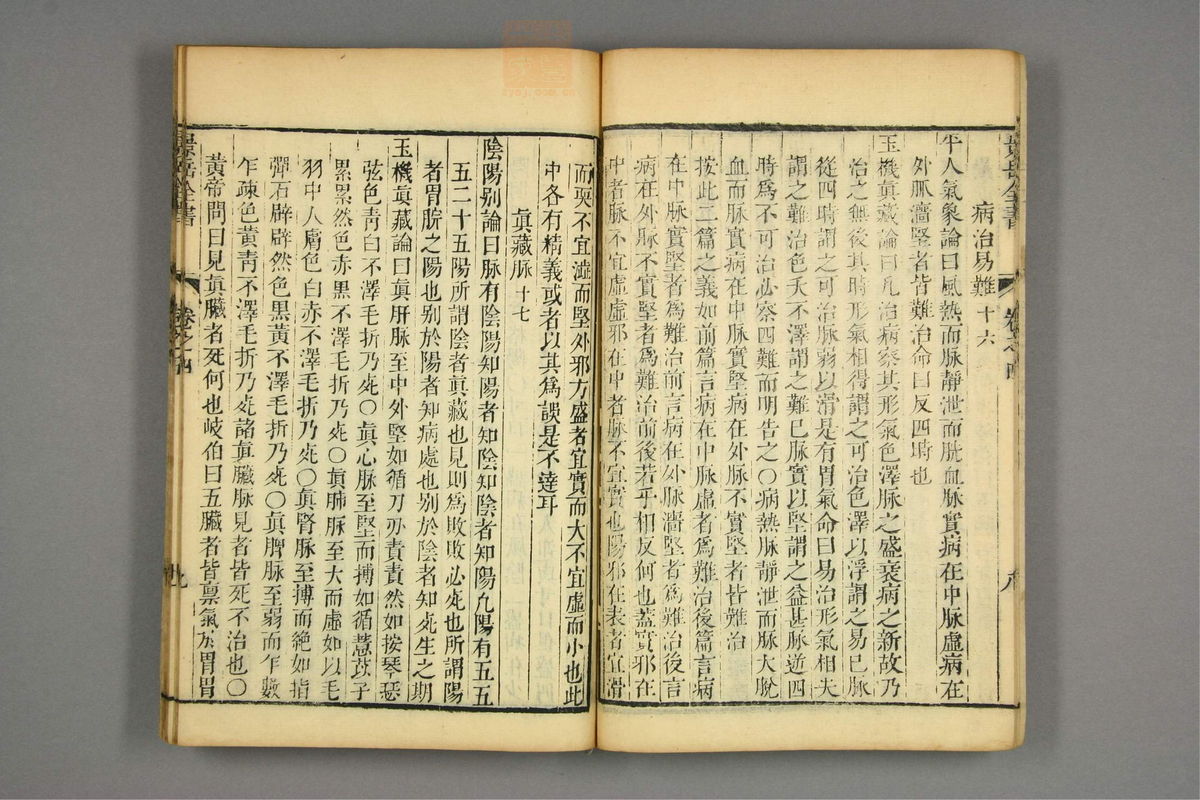 景岳全書 卷之四 八
病治易難十六
平人氣象論曰風熱而脉靜泄而脫血脉實病在中脉虛病在
外脉濇堅者皆難治命曰反四時也
玉機眞藏論曰凡治病察其形氣色澤脉之盛衰病之新故乃
治之無後其時形氣相得謂之可治色澤以浮謂之易已脉
從四時謂之可治脉弱以滑是有胃氣命曰易治形氣相失
謂之難治色夭不澤謂之難已脉實以堅謂之益甚脉逆四
時爲不可治必察四難而明告之○病熱脉靜泄而脉大脫
血而脉實病在中脉實堅病在外脉不實堅者皆難治
按此二篇之義如前篇言病在中脉虛者爲難治後篇言病
在中脉實堅者爲難治前言病在外脉濇堅者爲難治後言
病在外脉不實堅者爲難治前後若乎相反何也蓋實邪在
中者脉不宜虛虛邪在中者脉不宜實也陽邪在表者宜滑
而耎不宜澁而堅外邪方盛者宜實而大不宜虛而小也此
中各有精義或者以其爲誤是不達耳
眞藏脉十七
陰陽别論曰脉有陰陽知陽者知陰知陰者知陽凢陽有五五
五二十五陽所謂陰者眞藏也見則爲敗敗必死也所謂陽
者胃脘之陽也别於陽者知病處也别於陰者知死生之期
玉機眞藏論曰眞肝脉至中外堅如循刀刃責責然如按琴瑟
弦色靑白不澤毛折乃死○眞心脉至堅而搏如循薏苡子
累累然色赤黑不澤毛折乃死○眞肺脉至大而虛如以毛
羽中人膚色白赤不澤毛折乃死○眞腎脉至搏而絶如指
彈石辟辟然色黑黃不澤毛折乃死○眞脾脉至弱而乍數
乍疎色黃靑不澤毛折乃死諸眞臟脉見者皆死不治也○
黃帝問曰見眞臟者死何也岐伯曰五臟者皆禀氣於胃胃
景岳全書 卷之四 九